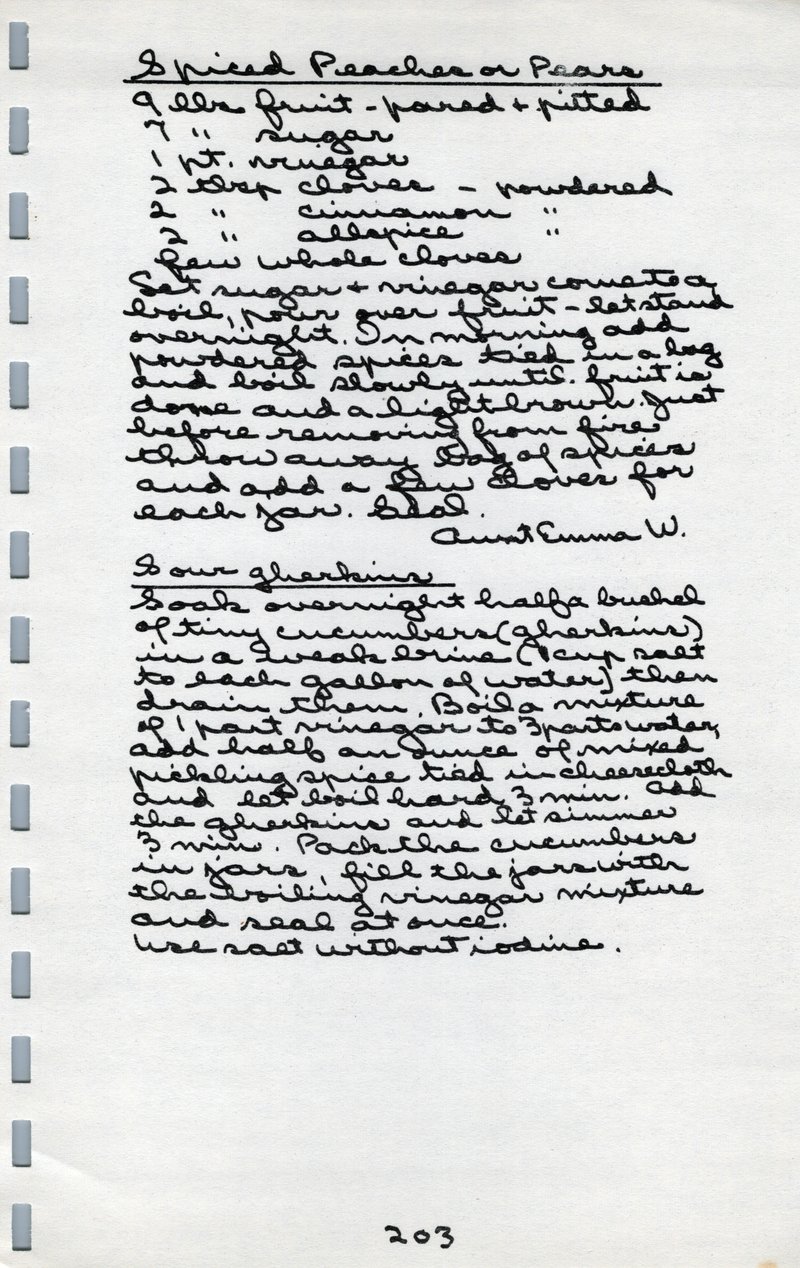 Spiced Peaches or Pears
9 lbs fruit - pared + pitted
7 " sugar
1 pt. vinegar
2 tbsp cloves - powdered
2 " cinnamon "
2 " allspice "
few whole cloves
Let sugar + vinegar come to a
boil, pour over fruit - let stand
overnight. In morning add
powdered spices tied in a bag
and boil slowly until fruit is
done and a light brown. Just
before removing from fire
throw away bag of spices
and add a few cloves for
each jar. Seal.
Aunt Emma W.
Sour gherkins
Soak overnight half a bushel
of tiny cucumbers (gherkins)
in a weak brine (1 cup salt
to each gallon of water) then
drain them. Boil a mixture
of 1 part vinegar to 3 parts water,
add half an ounce of mixed
pickling spice tied in cheesecloth
and let boil hard 3 min. Add
the gherkins and let simmer
3 min. Pack the cucumbers
in jars, fill the jars with
the boiling vinegar mixture
and seal at once.
Use salt without iodine.
203